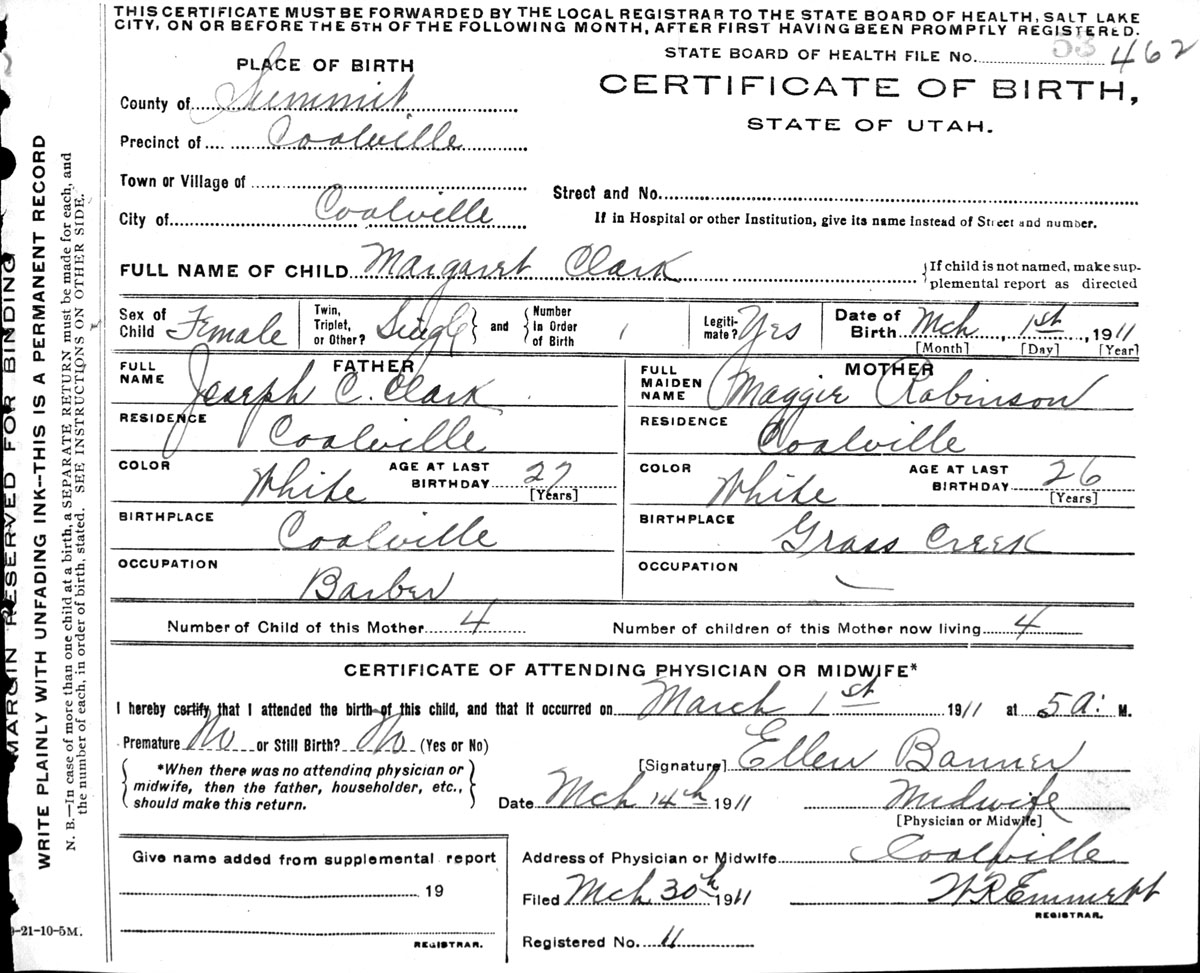 THIS CERTIFICATE MUST BE FORWARDED BY THE LOCAL REGISTRAR TO THE STATE BOARD OF HEALTH, SALT LAKE
CITY, ON OR BEFORE THE 5TH OF THE FOLLOWING MONTH, AFTER FIRST HAVING BEEN PROMPTLY REGISTERED.
STATE BOARD OF HEALTH FILE No. 53 462
PLACE OF BIRTH
CERTIFICATE OF BIRTH,
STATE OF UTAH.
County of Summit
Precinct of Coalville
Town or Village of
Street and No.
City of Coalville
If in Hospital or other Institution, give its name instead of Street and number.
FULL NAME OF CHILD Margaret Clark {If child is not named, make sup-
plemental report as directed
Sex of Child Female Twin, Triplet, or Other? Single } and { Number in Order of Birth 1 Legiti-mate? Yes Date of Birth Mch 1st, 1911
[Month] [Day] [Year]
FATHER MOTHER
FULL NAME Joseph C. Clark FULL MAIDEN NAME Maggie Robinson
RESIDENCE Coalville RESIDENCE Coalville
COLOR White AGE AT LAST BIRTHDAY 27 [Years] COLOR White AGE AT LAST BIRTHDAY 26 [Years]
BIRTHPLACE Coalville BIRTHPLACE Grass Creek
OCCUPATION Barber OCCUPATION —
Number of Child of this Mother 4 Number of children of this Mother now living 4
CERTIFICATE OF ATTENDING PHYSICIAN OR MIDWIFE*
I hereby certify that I attended the birth of this child, and that it occurred on March 1st 1911 at 5 a: M.
Premature No or Still Birth? No (Yes or No)
[Signature] Ellen Banner
{ *When there was no attending physician or
midwife, then the father, householder, etc.,
should make this return. }
Date Mch 14th 1911 Midwife
[Physician or Midwife]
Give name added from supplemental report
19
REGISTRAR.
Address of Physician or Midwife Coalville
Filed Mch 30th 1911 W R Emmett
REGISTRAR.
Registered No. 11
MARGIN RESERVED FOR BINDING
WRITE PLAINLY WITH UNFADING INK--THIS IS A PERMANENT RECORD
N. B.—In case of more than one child at a birth, a SEPARATE RETURN must be made for each, and
the number of each, in order of birth, stated. SEE INSTRUCTIONS ON OTHER SIDE.
-21-10-5M.